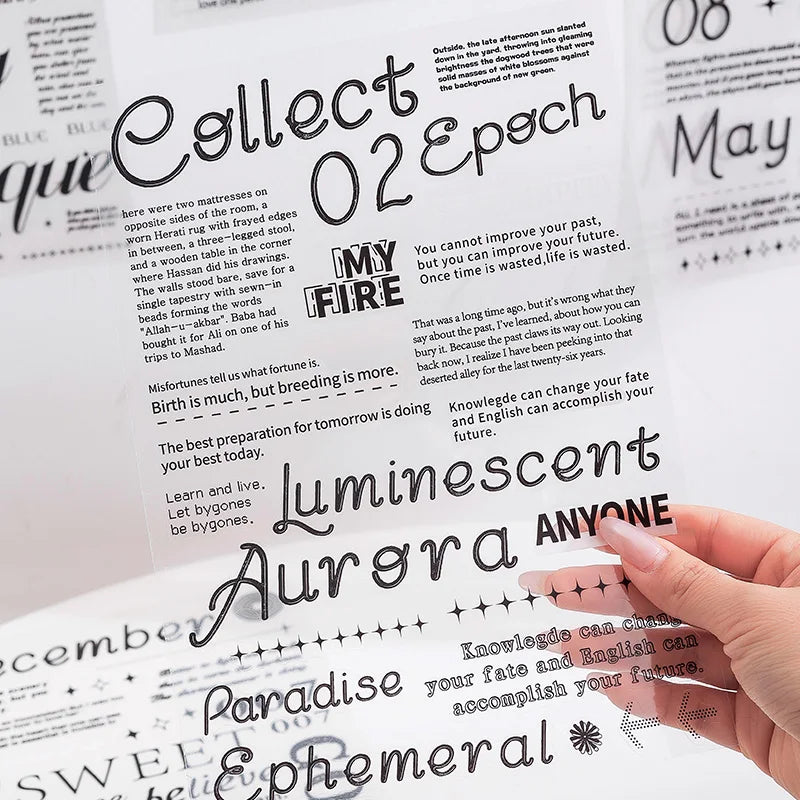 Collect
Outside, the late afternoon sun slanted
down in the yard, throwing into gleaming
brightness the dogwood trees that were
solid masses of white blossoms against
the background of new green.
02 Epoch
here were two mattresses on
opposite sides of the room, a
worn Herati rug with frayed edges
in between, a three-legged stool,
and a wooden table in the corner
where Hassan did his drawings.
The walls stood bare, save for a
single tapestry with sewn-in
beads forming the words
"Allah-u-akbar". Baba had
bought it for Ali on one of his
trips to Mashad.
MY
FIRE
You cannot improve your past,
but you can improve your future.
Once time is wasted,life is wasted.
That was a long time ago, but it's wrong what they
say about the past, I've learned, about how you can
bury it. Because the past claws its way out. Looking
back now, I realize I have been peeking into that
deserted alley for the last twenty-six years.
Misfortunes tell us what fortune is.
Birth is much, but breeding is more.
Knowlegde can change your fate
and English can accomplish your
future.
The best preparation for tomorrow is doing
your best today.
Learn and live.
Let bygones
be bygones.
Luminescent
Aurora
ANYONE
Knowlegde can chang
your fate and English can
accomplish your future.
Paradise
Ephemeral
08
May
BLUE BLUE
que
ecember
SWEET 007
believe